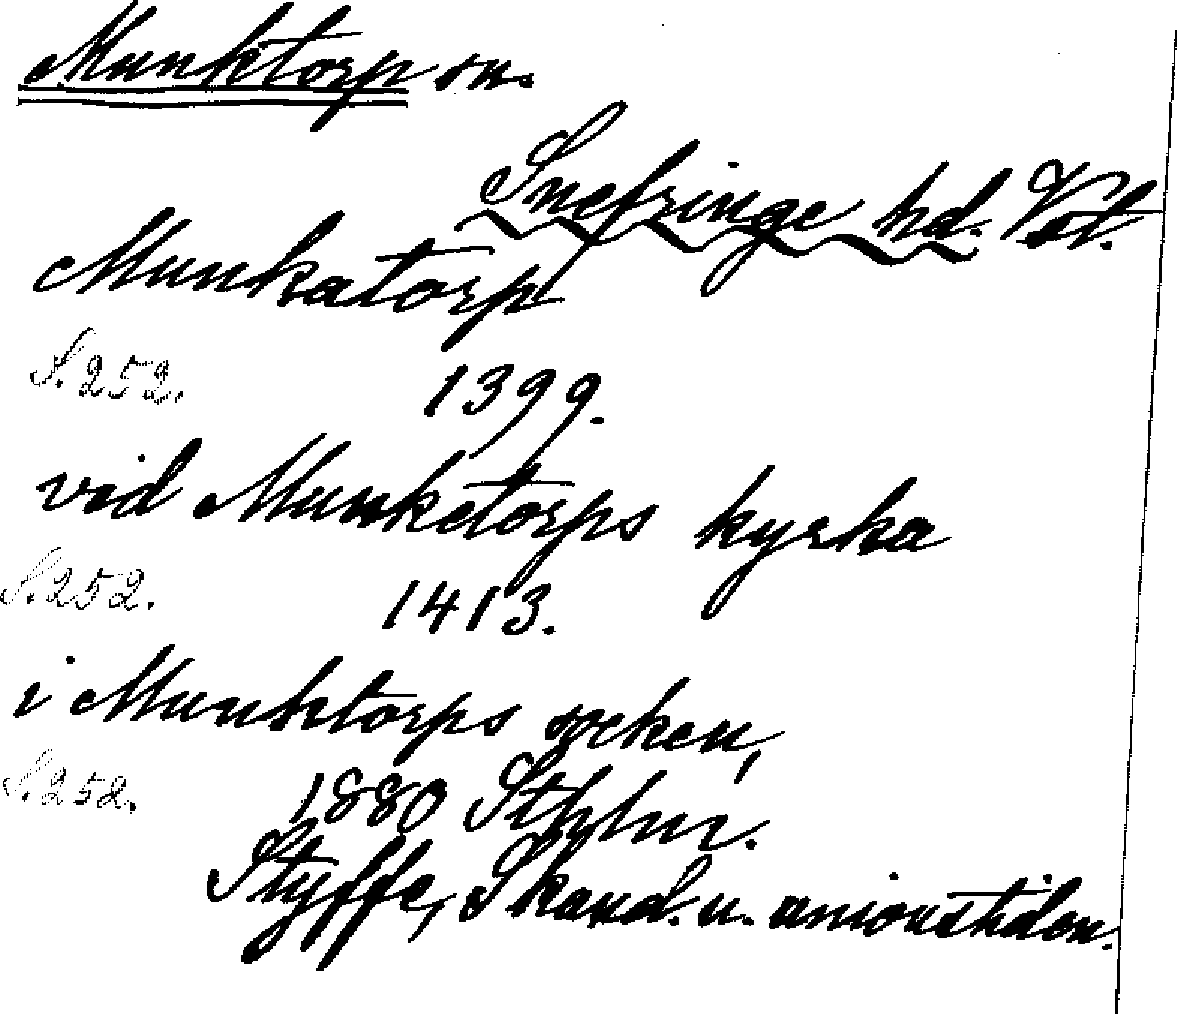 Munktorp sn.
Snefringe hd. Vstl.
Munkatorp
S. 252. 1399.
vid Munketorps kyrka
S. 252. 1413.
i Munktorps socken,
S. 252. 1880 Sthlm.
Styffe, Skand. u. unionstiden.